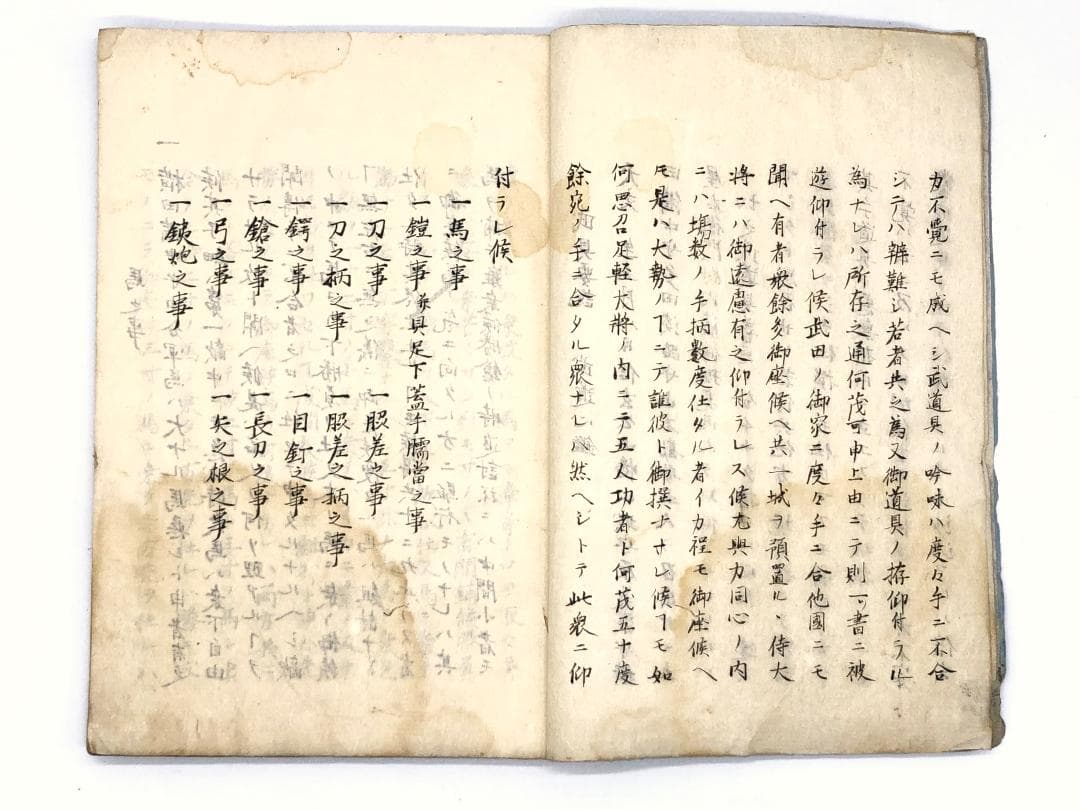 カ不覺ニモ成ヘシ武道具ノ吟味ハ度々手ニ不合
シテハ辨難シ若者共之為又御道具ノ拵仰付ラル
為ナレハ所存之通何茂可申上由ニテ則一書ニ被
遊仰付ラレ候武田ノ御家ニ度々手ニ合他國ニモ
聞ヘ有者衆餘多御座候ヘ共一城ヲ預置ル丶侍大
將ニハ御遠慮有之仰付ラレス候尤與力同心ノ内
ニハ塲数ノ手柄数度仕タル者イカ程モ御座候ヘ
𪜈是ハ大勢ノ𬼀ニテ誰彼ト御撰ナサレ候𬼀モ如
何思召足軽大將ノ内ニテ五人功者ト何茂五十度
餘宛ノ手ニ合タル衆ナレハ然ヘシトテ此衆ニ仰
付ラレ候
一馬之事
一鎧之事 并具足下蓋手臑當之事
一刀之事 一脇差之事
一刀之柄之事 一脇差之柄之事
一鍔之事 一目釘之事
一鎗之事 一長刀之事
一弓之事 一矢之根之事
一鉄炮之事